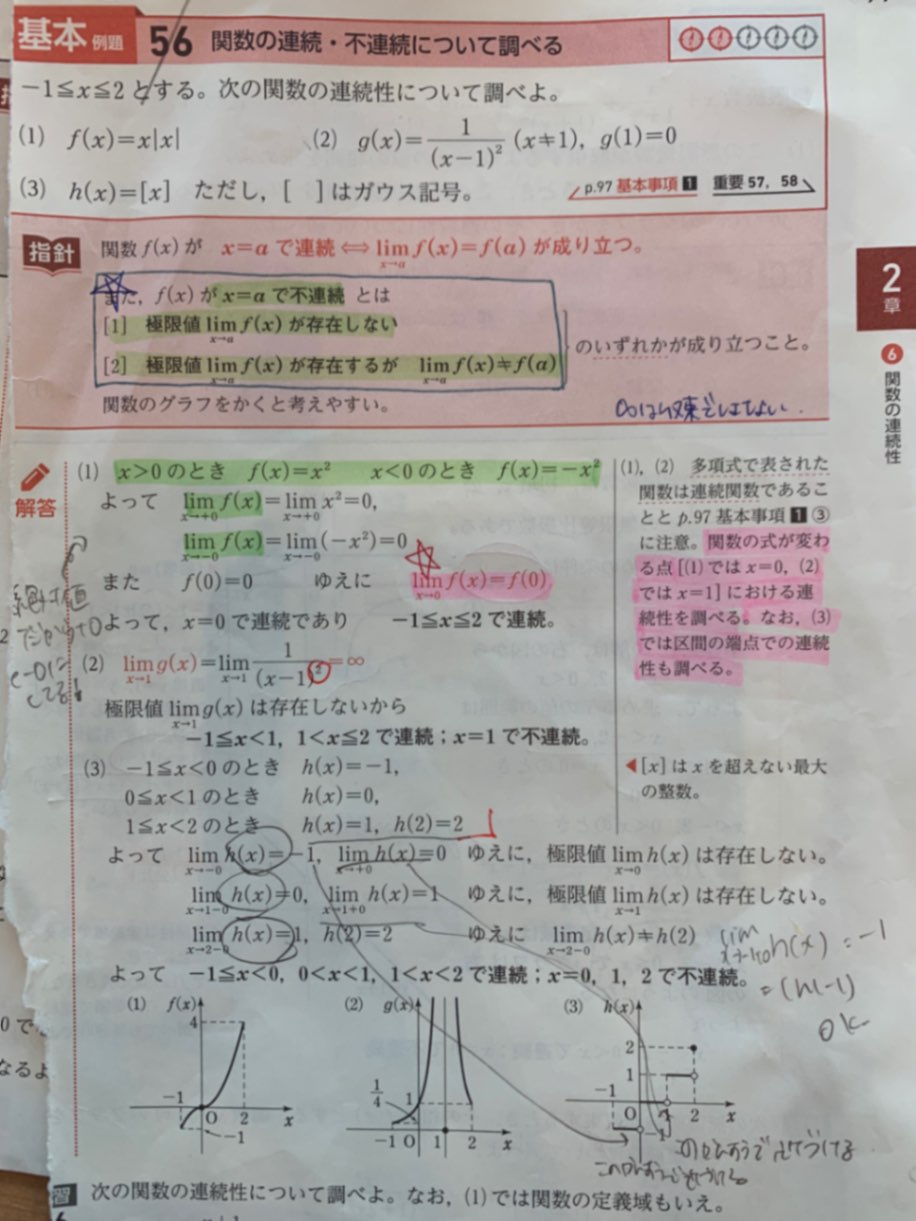 基本 例題 56 関数の連続・不連続について調べる
−1≦x≦2 とする。次の関数の連続性について調べよ。
(1) f(x)=x|x| (2) g(x)=1/(x−1)² (x≠1), g(1)=0
(3) h(x)=[x] ただし, [ ] はガウス記号。
p.97 基本事項 1 重要 57, 58
指針 関数 f(x) が x=a で連続 ⟺ lim[x→a] f(x)=f(a) が成り立つ。
また, f(x) が x=a で不連続 とは
[1] 極限値 lim[x→a] f(x) が存在しない
[2] 極限値 lim[x→a] f(x) が存在するが lim[x→a] f(x)≠f(a)
のいずれかが成り立つこと。
関数のグラフをかくと考えやすい。
∞は収束ではない.
2章
6 関数の連続性
解答
(1) x>0 のとき f(x)=x² x<0 のとき f(x)=−x²
よって lim[x→+0] f(x)=lim[x→+0] x²=0,
lim[x→−0] f(x)=lim[x→−0] (−x²)=0
また f(0)=0 ゆえに lim[x→0] f(x)=f(0)
よって, x=0 で連続であり −1≦x≦2 で連続。
絶対値
だから+0
と−0に
(2) lim[x→1] g(x)=lim[x→1] 1/(x−1)²=∞
極限値 lim[x→1] g(x) は存在しないから
−1≦x<1, 1<x≦2 で連続；x=1 で不連続。
(3) −1≦x<0 のとき h(x)=−1,
0≦x<1 のとき h(x)=0,
1≦x<2 のとき h(x)=1, h(2)=2
よって lim[x→−0] h(x)=−1, lim[x→+0] h(x)=0 ゆえに, 極限値 lim[x→0] h(x) は存在しない。
lim[x→1−0] h(x)=0, lim[x→1+0] h(x)=1 ゆえに, 極限値 lim[x→1] h(x) は存在しない。
lim[x→2−0] h(x)=1, h(2)=2 ゆえに lim[x→2−0] h(x)≠h(2)
よって −1≦x<0, 0<x<1, 1<x<2 で連続；x=0, 1, 2 で不連続。
(1), (2) 多項式で表された
関数は連続関数であるこ
とと p.97 基本事項 1 ③
に注意。関数の式が変わ
る点 [(1) では x=0, (2)
では x=1] における連
続性を調べる。なお, (3)
では区間の端点での連続
性も調べる。
◀[x] は x を超えない最大
の整数。
lim h(x) = −1
= (h(−1)
OK
(1) f(x) 4 −1 O 2 x −1
(2) g(x) 1/4 1 −1 O 1 2 x
(3) h(x) 2 1 −1 O 1 2 x −1
習 次の関数の連続性について調べよ。なお, (1) では関数の定義域もいえ。